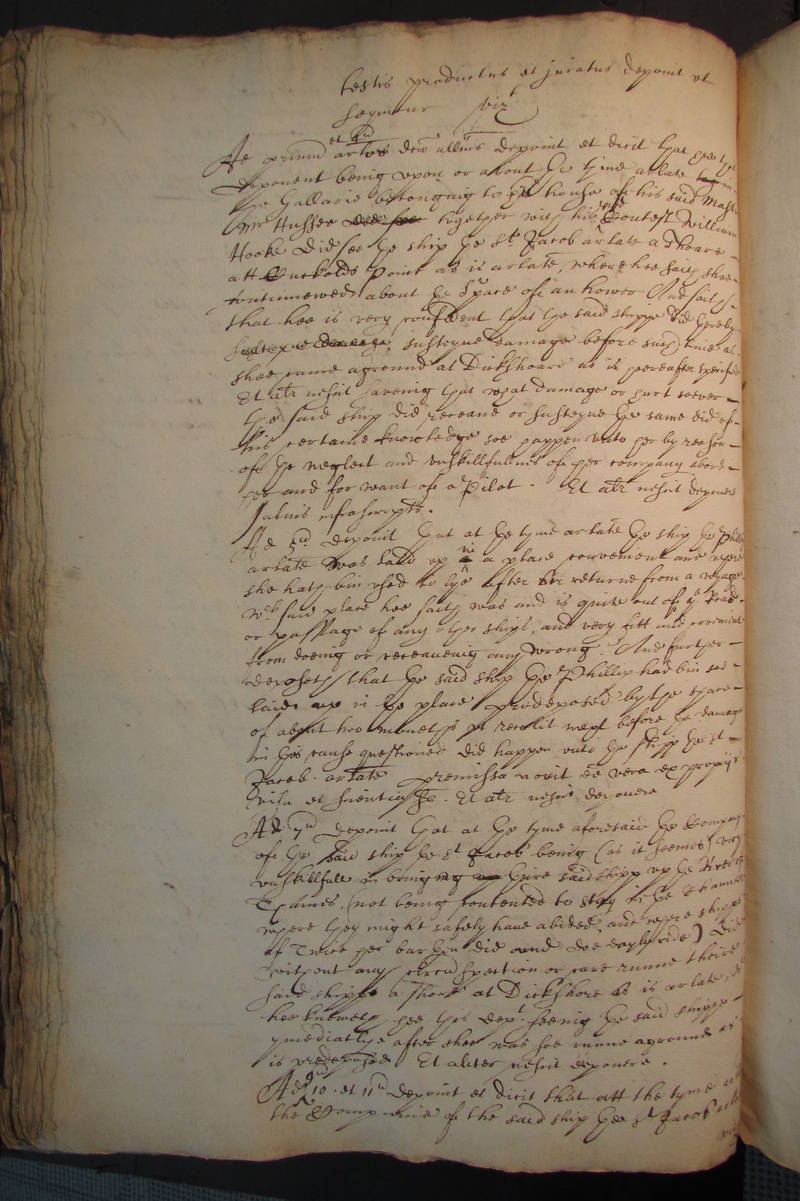 testis productus et juratus deponit ut
sequitur vizt
Ad primum et 2um artlos dew alltis deponit et dicit that hee this
deponent being upon or about the tyme arlate in
the Gallarie belonging to the house of his said Mast
Mr Hussee together with his Contest William
Hooke did see the ship the St. Jacob arlate a shoare
att Cuckolds Point as is arlate, where hee saith shee
continnewed about the space of an hower And saith
that hee is very confident that the said shippe did thereby
susteyne damage before such time as
shee came aground at Dickshoare as is hereafter specified
Et aliter nescit saveing that what damage or hurt soever
the said ship did receave or susteyne the same did of
his certaine knowledge soe happen unto her by reason
of the neglect and unskillfulnes of her company abord
her and for want of a Pilot. Et aliter nescit deponere
salvis infrascriptis.
Ad deponit that at the tyme arlate the ship the Phillip
arlate was laid up in a place convenient and where
she hath bin used to lye after her returne from a voyage
wch said place hee saith was and is quite out of ye Road
or passage of any other ships, and very fitt and convenient
from doeing or receaveing any wrong. And further
deposeth that the said ship the Phillip had bin soe
laid up in the place predeposed by the space
of about two moneths yt recollit next before the damage
in this cause questioned did happen unto the shipp the St
Jacob arlate premissa novit esse vera ex proprijs
visu et scientia &c. Et aliter nescit deponere
Ad 7um deponit that at the tyme aforesaid the Company
of the said ship the St Jacob being (as it seemes) very
unskillfull in bringing up theire said shipp up the River of
Thames, (not being contented to stay in the Channel
where they might safely have abided, and where shipps
of twice her burthen did and doe dayly ride) did
without any circumspection or care runne theire
said shippe a shore at Dickshore as is arlate,
hee knoweth hee this dept seeing the said shippe
ymediatlye after shee was soe runne aground as
is predeposed Et aliter nescit deponere.
Ad 9um 10 et 11um deponit et dicit that att the tyme
the Companie of the said ship the St Jacob